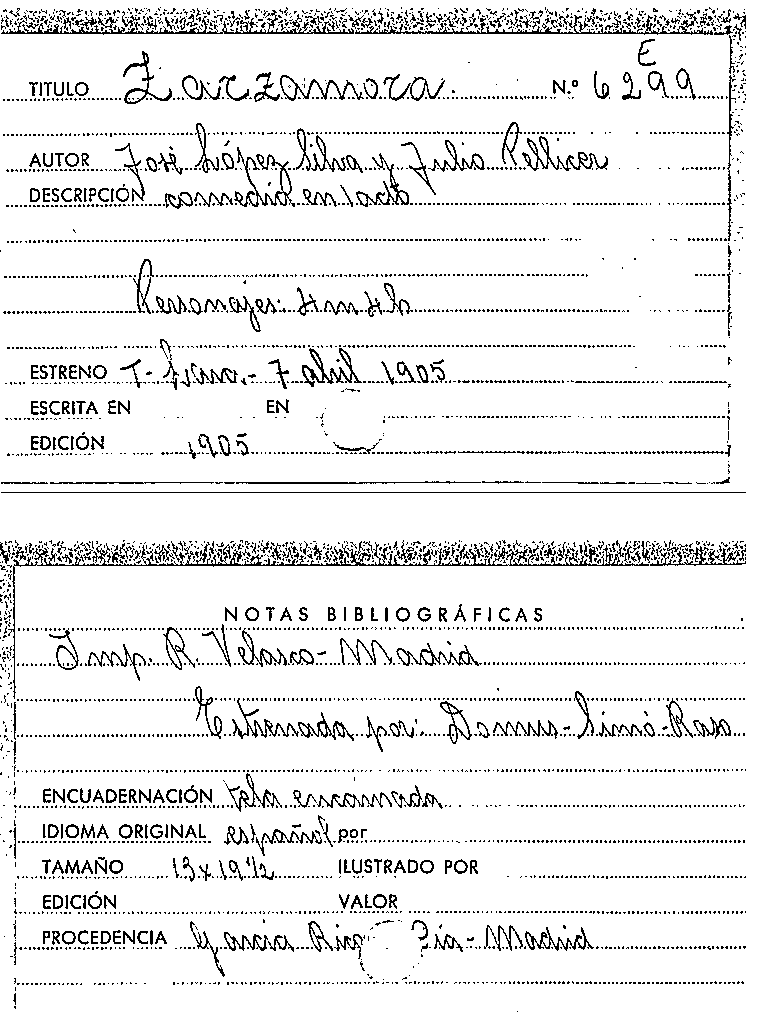 E
TITULO Zarzamora. N.º 6299
AUTOR José López Silva y Julio Pellicer
DESCRIPCIÓN comedia en 1 acto
Personajes: 4 m 4 h
ESTRENO T- Lara.- 7 abril 1905
ESCRITA EN EN
EDICIÓN 1905
NOTAS BIBLIOGRÁFICAS
Imp. R. Velasco- Madrid
Estrenada por: Domus-Simó-Raso
ENCUADERNACIÓN tela encarnada
IDIOMA ORIGINAL español por
TAMAÑO 13 x 19 ½ ILUSTRADO POR
EDICIÓN VALOR
PROCEDENCIA Garcia Rico Cia- Madrid